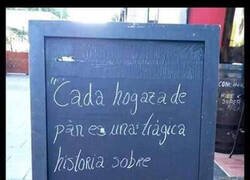 "Cada hogaza de
pan es una trágica
historia sobre